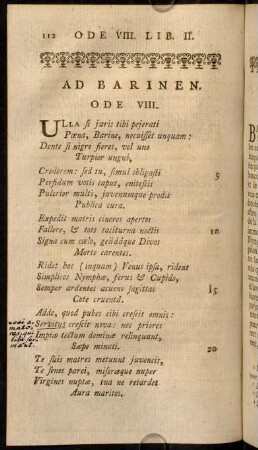 112 ODE VIII. LIB. II.
AD BARINEN.
ODE VIII.
ULLA si juris tibi pejerati
Pœna, Barine, nocuisset unquam:
Dente si nigro fieres, vel uno
Turpior ungui,
Crederem: sed tu, simul obligasti 5
Perfidum votis caput, enitescis
Pulcrior multo, juvenumque prodis
Publica cura.
Expedit matris cineres opertos
Fallere, & toto taciturna noctis 10
Signa cum cœlo, gelidâque Divos
Morte carentes.
Ridet hoc (inquam) Venus ipsa, rident
Simplices Nymphæ, ferus & Cupido,
Semper ardentes acuens sagittas 15
Cote cruentâ.
Adde, quod pubes tibi crescit omnis:
Servitus crescit nova: nec priores
Impiæ tectum dominæ relinquunt,
Sæpe minati. 20
Te suis matres metuunt juvencis,
Te senes parci, miseræque nuper
Virgines nuptæ, tua ne retardet
Aura maritos.